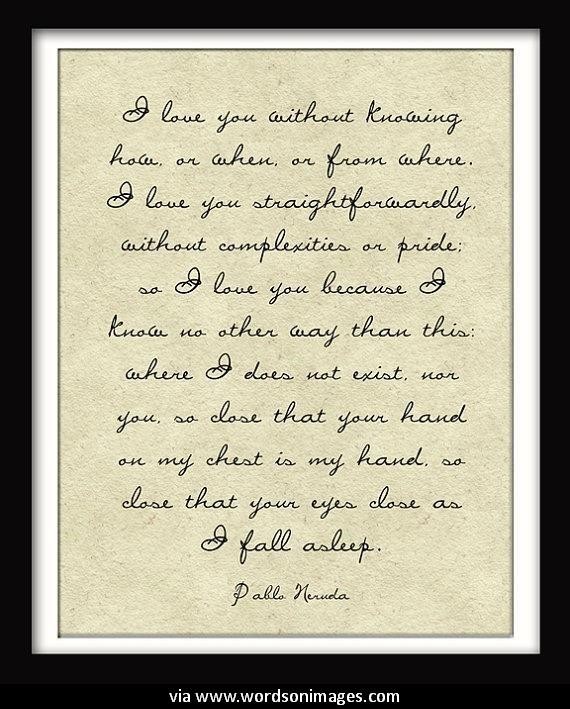 I love you without knowing
how, or when, or from where.
I love you straightforwardly,
without complexities or pride;
so I love you because I
know no other way than this:
where I does not exist, nor
you, so close that your hand
on my chest is my hand, so
close that your eyes close as
I fall asleep.
Pablo Neruda
via www.wordsonimages.com